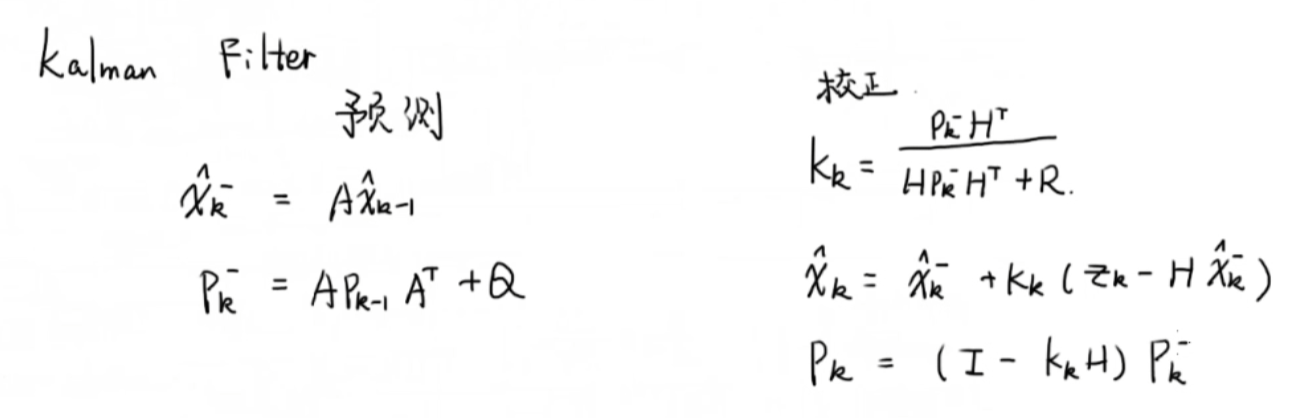 Kalman Filter
预测
x̂ₖ⁻ = Ax̂ₖ₋₁
Pₖ⁻ = APₖ₋₁Aᵀ + Q
校正
Kₖ = Pₖ⁻Hᵀ / (HPₖ⁻Hᵀ + R.)
x̂ₖ = x̂ₖ⁻ + Kₖ(zₖ - Hx̂ₖ⁻)
Pₖ = (I - KₖH)Pₖ⁻